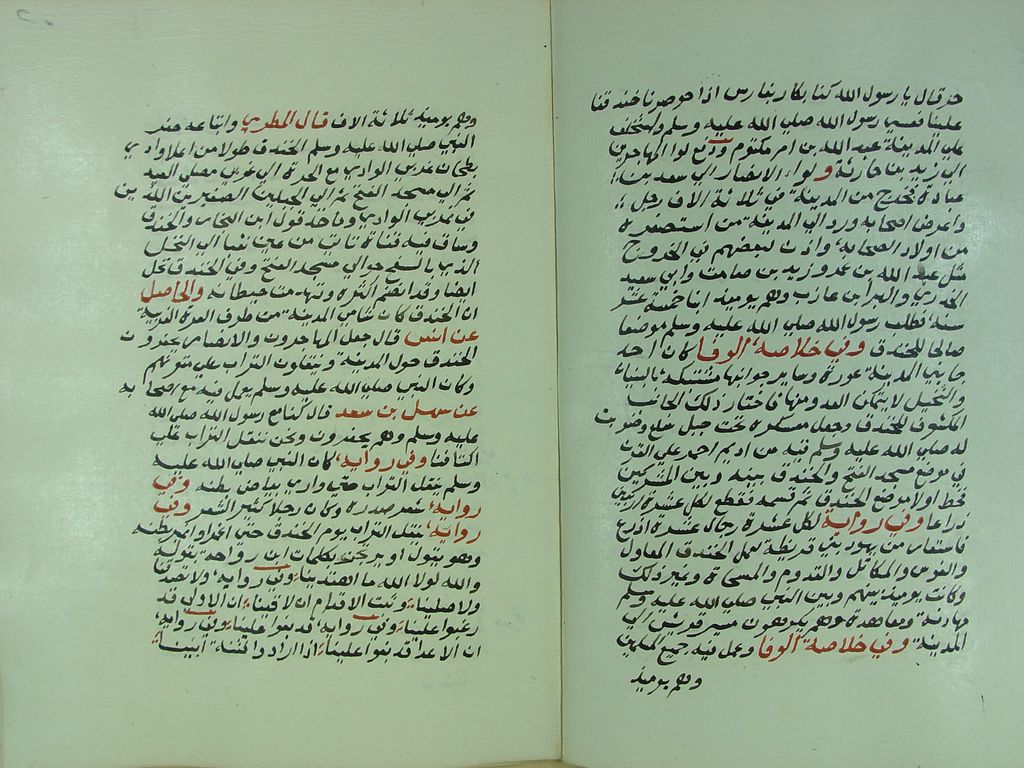 حد قال يا رسول الله كنا بكار بفارس اذا حوصرنا خندقنا
علينا فسمي رسول الله صلي الله عليه وسلم واستخلف
علي المدينة عبد الله بن ام مكتوم ودفع لوا المهاجرين
الي زيد بن حارثة ولواء الانصار الي سعد بن
عبادة فخرج من المدينة في ثلاثة الاف رجل
واعرض اصحابه ورد الي المدينة من استصغره
من اولاد الصحابه واذن لبعضهم في الخروج
مثل عبد الله بن عمر وزيد بن صامت وابي سعيد
الخدري والبرا بن عازب وهم يوميذ ابنا خمسة عشر
سنة فطلب رسول الله صلي الله عليه وسلم موضعا
صالحا للخندق وفي خلاصة الوفا كان احد
جانبي المدينة عورة وساير جوانبها مشتبكة بالبناء
والنخيل لا يتمكن العدو منها فاختار ذلك الجانب
المكشوف للخندق وجعل معسكره تحت جبل سلع وضربت
له صلي الله عليه وسلم قبه من اديم احمر علي القرن
في موضع مسجد الفتح والخندق بينه وبين المشركين
فخط اولا موضع الخندق ثم قسمه فقطع لكل عشرة اربعين
ذراعا وفي رواية لكل عشرة رجال عشرة اذرع
فاستعار من يهود بني قريظة مثل الخندق المعاول
والفوس والمكاتل والقدوم والمسحاة وغير ذلك
وكانت يوميذ بينهم وبين النبي صلي الله عليه وسلم
مهادنة ومعاهدة وهم يكرهون مسير قريش الي
المدينة وفي خلاصة الوفا وعمل فيه جميع المسلمين
وهم يوميذ
وهم يوميذ ثلاثة الاف قال المطري واتباعه حفر
النبي صلي الله عليه وسلم الخندق طولا من اعلا وادي
بطحان غربي الوادي مع الحرة الي غربي مصلي العيد
ثم الي مسجد الفتح ثم الي الجبلين الصغيرين اللذين
في غربي الوادي وماخذه قول ابن النجار والخندق
وساق فيه قناة تاتي من عين قبا الي النخل
الذي بالسيح حوالي مسجد الفتح وفي الخندق نخل
ايضا وقد انطم اكثره وتهدمت حيطانه والحاصل
ان الخندق كان شامي المدينة من طرف الحرة الغربية
عن انس قال جعل المهاجرون والانصار يحفرون
الخندق حول المدينة وينقلون التراب علي متونهم
وكان النبي صلي الله عليه وسلم يعمل فيه مع اصحابه
عن سهل بن سعد قال كنا مع رسول الله صلي الله
عليه وسلم وهم يحفرون ونحن ننقل التراب علي
اكتافنا وفي رواية كان النبي صلي الله عليه
وسلم ينقل التراب حتي واري بياض بطنه وفي
رواية شعر صدره وكان رجلا كثير الشعر وفي
رواية ينقل التراب يوم الخندق حتي اغبر بطنه
وهو يقول او يرتجز بكلمات ابن رواحة يقول
والله لولا الله ما اهتدينا وفي رواية ولا تصدقنا
ولا صلينا وثبت الاقدام ان لاقينا ان الاولي قد
رغبوا علينا وفي رواية قد بغوا علينا وفي رواية
ان الاعدا قد بغوا علينا اذا ارادوا فتنة ابينا